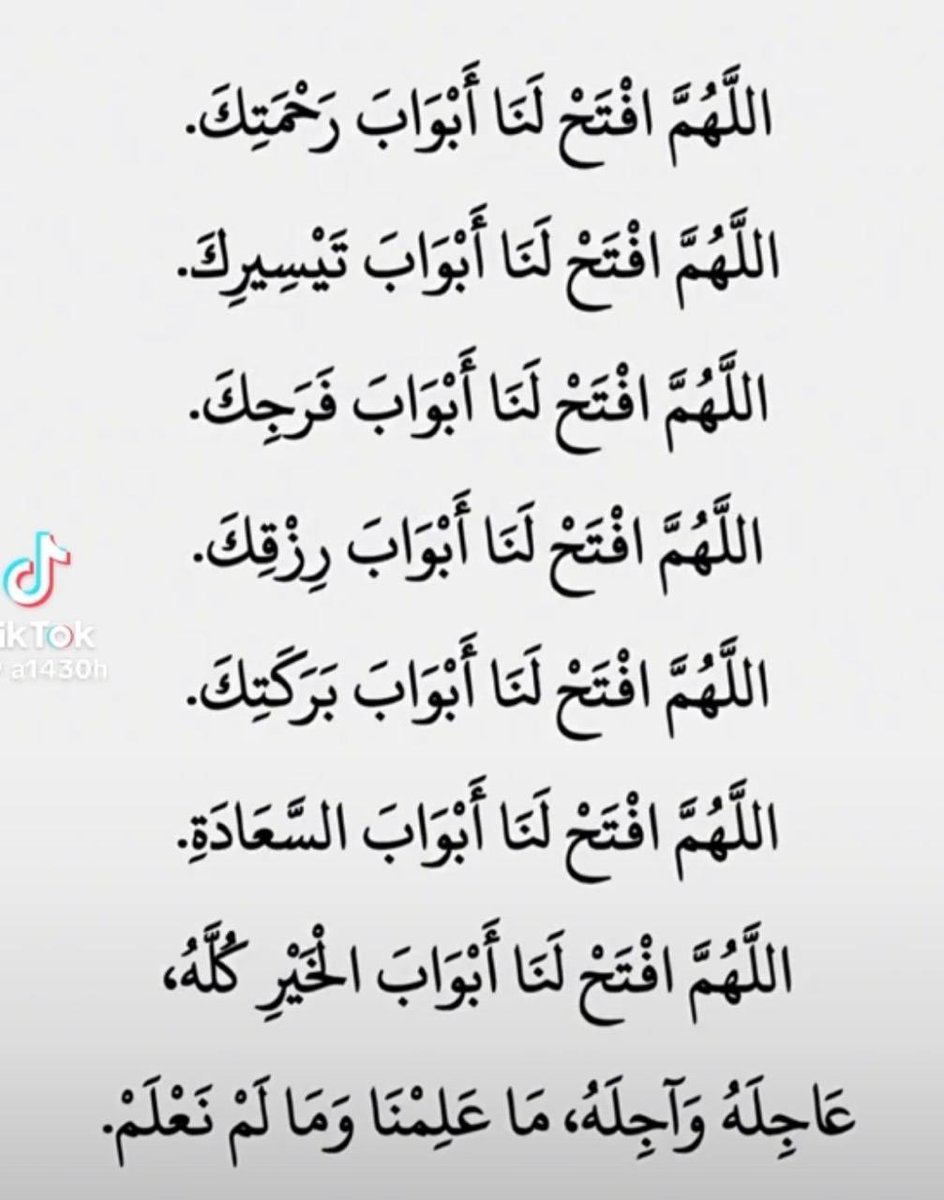 اللَّهُمَّ افْتَحْ لَنَا أَبْوَابَ رَحْمَتِكَ.
اللَّهُمَّ افْتَحْ لَنَا أَبْوَابَ تَيْسِيرِكَ.
اللَّهُمَّ افْتَحْ لَنَا أَبْوَابَ فَرَجِكَ.
اللَّهُمَّ افْتَحْ لَنَا أَبْوَابَ رِزْقِكَ.
ikTok
a1430h
اللَّهُمَّ افْتَحْ لَنَا أَبْوَابَ بَرَكَتِكَ.
اللَّهُمَّ افْتَحْ لَنَا أَبْوَابَ السَّعَادَةِ.
اللَّهُمَّ افْتَحْ لَنَا أَبْوَابَ الْخَيْرِ كُلَّهُ،
عَاجِلَهُ وَآجِلَهُ، مَا عَلِمْنَا وَمَا لَمْ نَعْلَمْ.